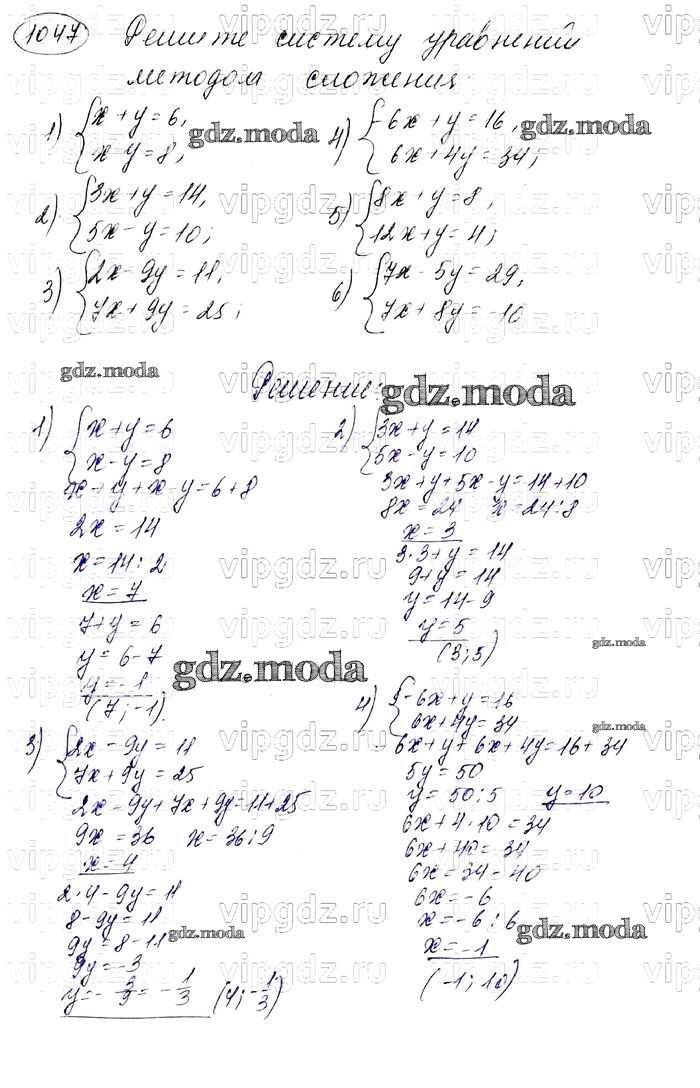 1047 Решите систему уравнений
методом сложения
1) { x + y = 6,
x - y = 8,
4) { -6x + y = 16,
6x + 4y = 34;
2) { 3x + y = 14,
5x - y = 10;
5) { 8x + y = 8,
12x + y = 4;
3) { 2x - 9y = 11,
7x + 9y = 25;
6) { 7x - 5y = 29,
7x + 8y = -10
gdz.moda
gdz.moda
vipgdz.ru
gdz.moda
Решение:
gdz.moda
1) { x + y = 6
x - y = 8
x + y + x - y = 6 + 8
2x = 14
x = 14 : 2
x = 7
7 + y = 6
y = 6 - 7
y = -1
(7; -1).
2) { 3x + y = 14
5x - y = 10
3x + y + 5x - y = 14 + 10
8x = 24 x = 24 : 8
x = 3
3 · 3 + y = 14
9 + y = 14
y = 14 - 9
y = 5
(3; 5)
gdz.moda
gdz.moda
3) { 2x - 9y = 11
7x + 9y = 25
2x - 9y + 7x + 9y = 11 + 25
9x = 36 x = 36 : 9
x = 4
2 · 4 - 9y = 11
8 - 9y = 11
9y = 8 - 11
9y = -3
y = -3/9 = -1/3 (4; -1/3)
4) { -6x + y = 16
6x + 4y = 34
-6x + y + 6x + 4y = 16 + 34
5y = 50
y = 50 : 5 y = 10
6x + 4 · 10 = 34
6x + 40 = 34
6x = 34 - 40
6x = -6
x = -6 : 6
x = -1
(-1; 10)
gdz.moda
gdz.moda
gdz.moda